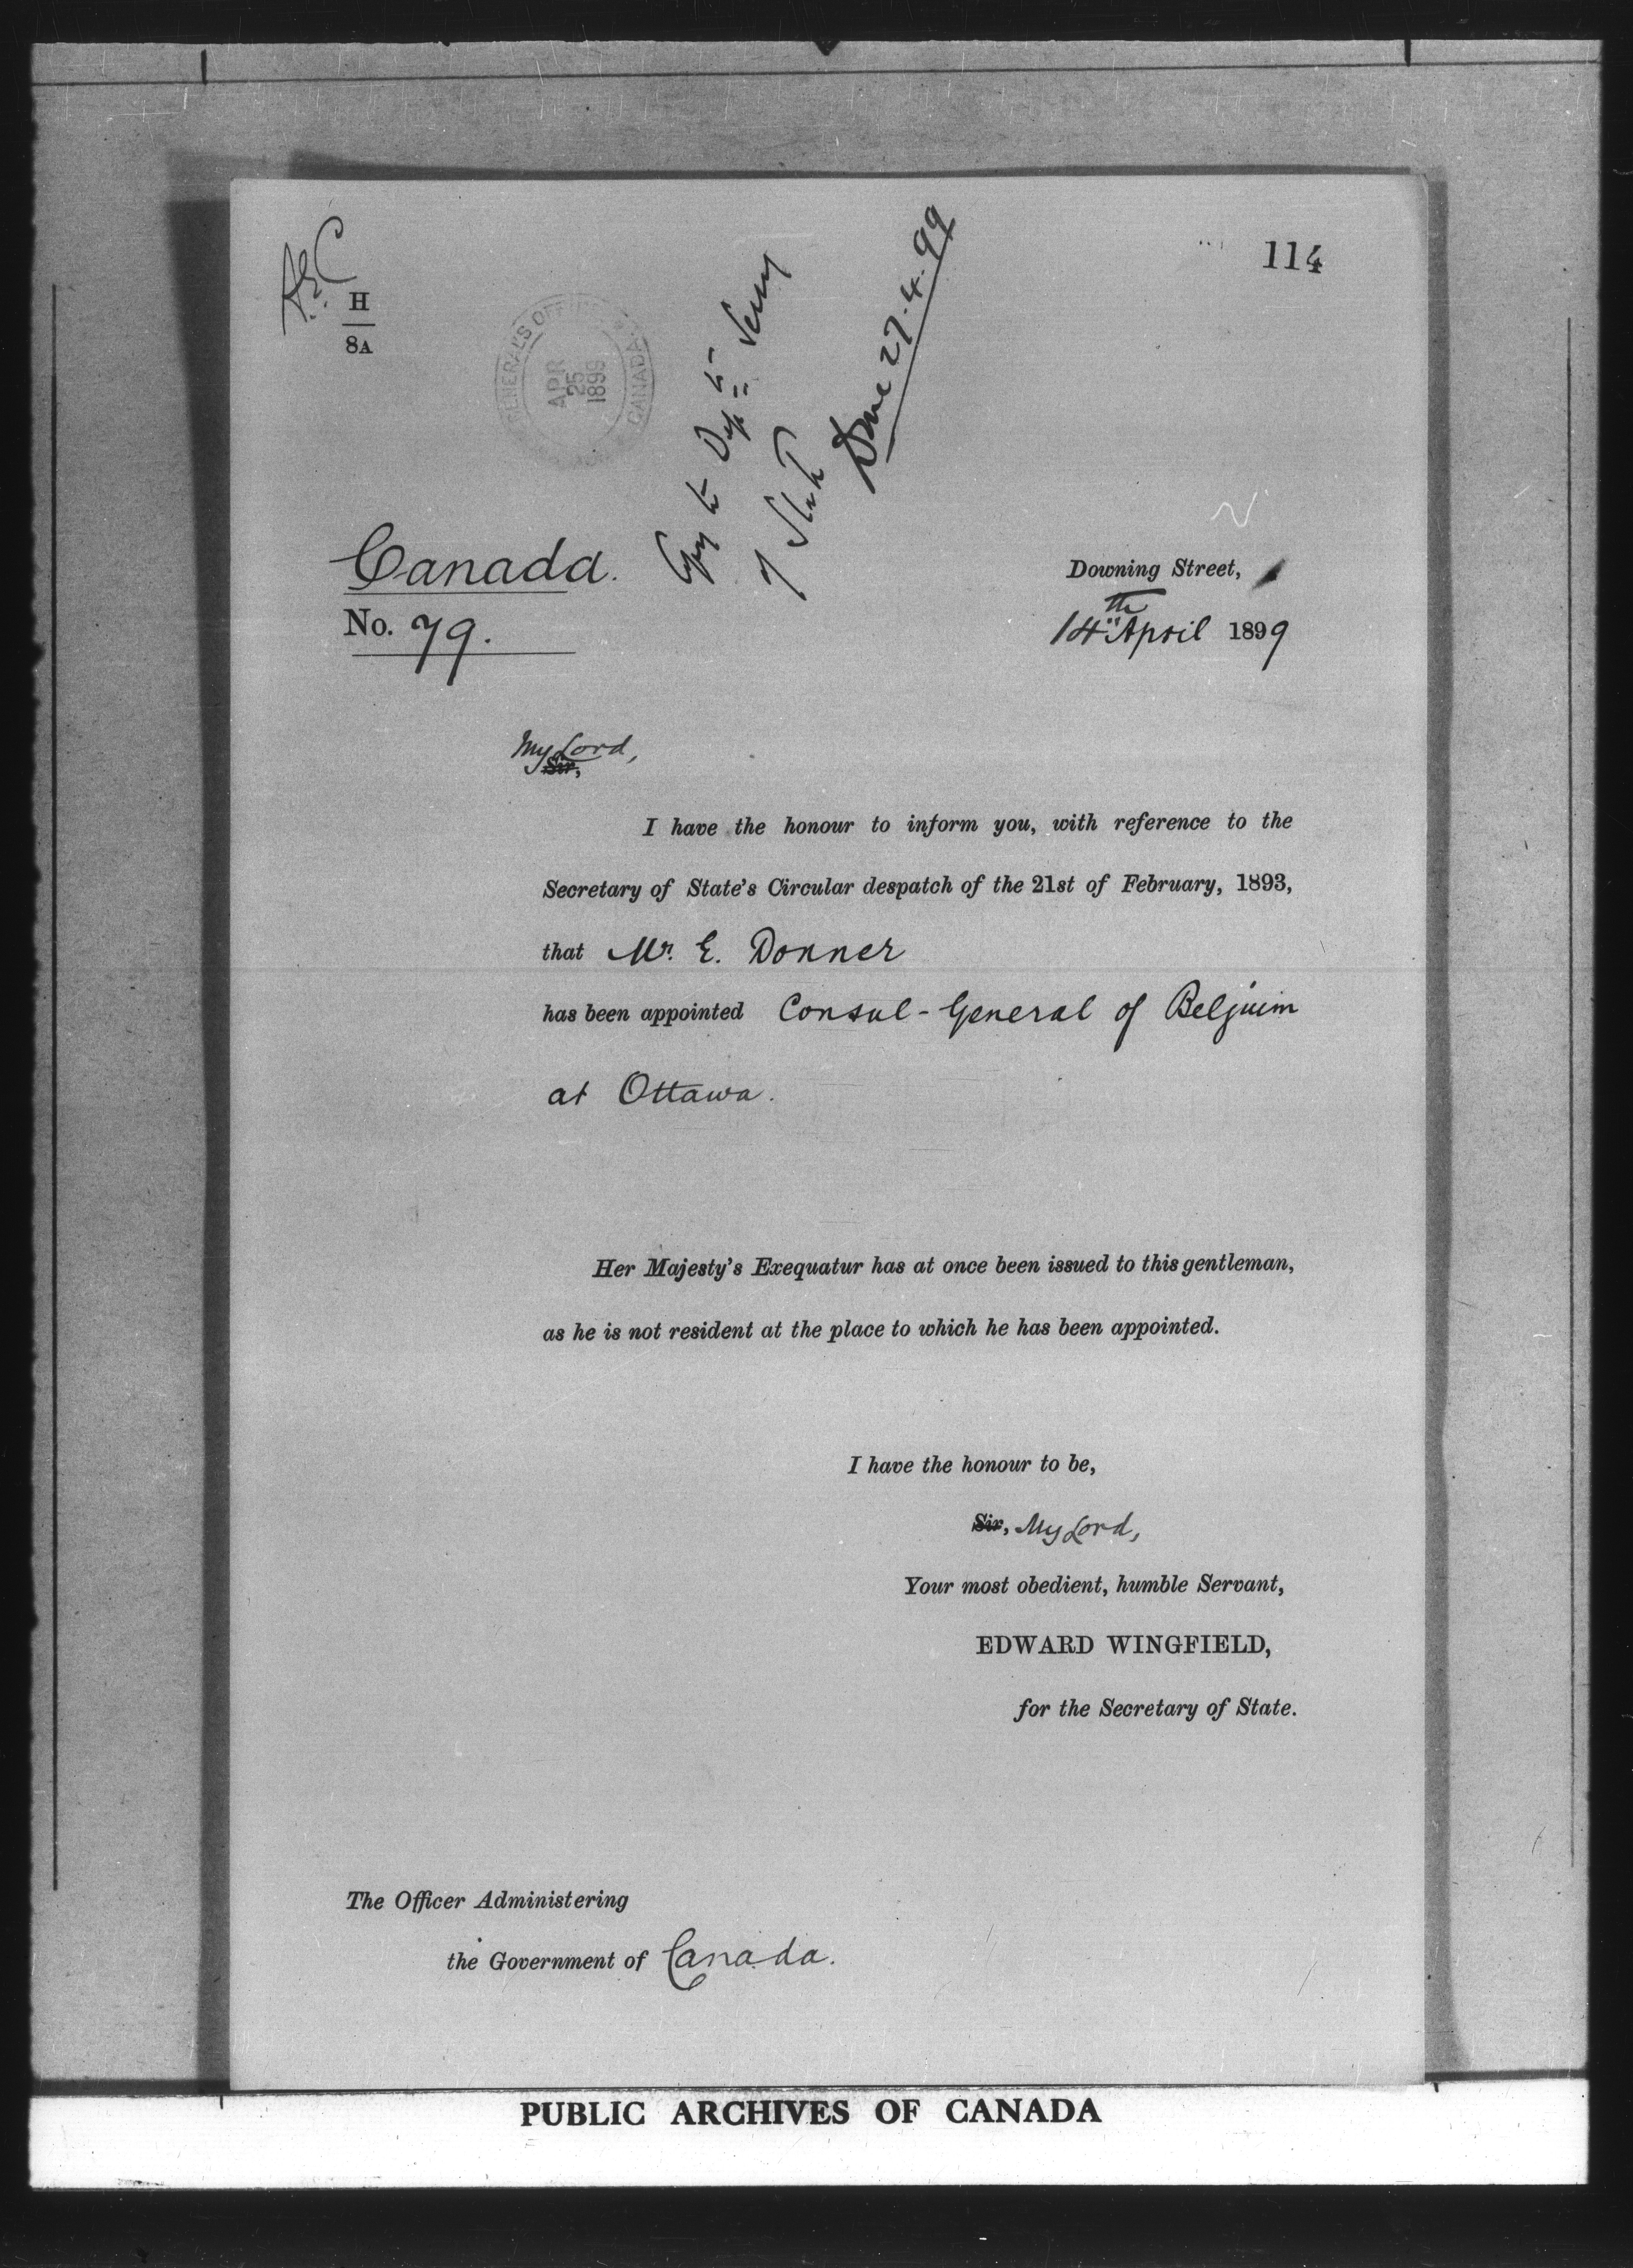 114
H
8A
GENERAL'S OFF
APR
25
1899
CANADA
Copy to Depy to Secy
of State
Done 27.4.99
Canada.
No. 79.
Downing Street,
14th April 1899
My Lord,
Sir,
I have the honour to inform you, with reference to the
Secretary of State's Circular despatch of the 21st of February, 1893,
that Mr. E. Donner
has been appointed Consul-General of Belgium
at Ottawa.
Her Majesty's Exequatur has at once been issued to this gentleman,
as he is not resident at the place to which he has been appointed.
I have the honour to be,
Sir, My Lord,
Your most obedient, humble Servant,
EDWARD WINGFIELD,
for the Secretary of State.
The Officer Administering
the Government of Canada.
PUBLIC ARCHIVES OF CANADA